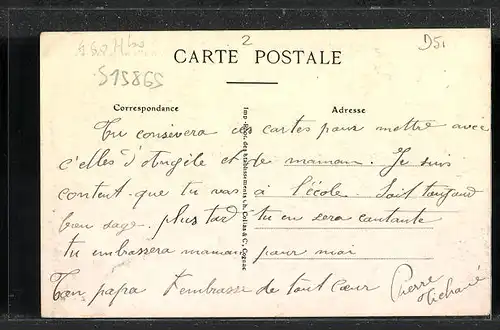 2
D51
515865
CARTE POSTALE
Correspondance
Adresse
Imp.-Phot. des Etablissements Ch. Collas & C°, Cognac
Tu conservera ces cartes pour mettre avec
c'elles d'Angèle et de maman. Je suis
content que tu vas à l'école. Soit toujour
bien sage. plus tard tu en sera contante
tu embrassera maman pour moi
Ton papa t'embrasse de tout cœur Pierre